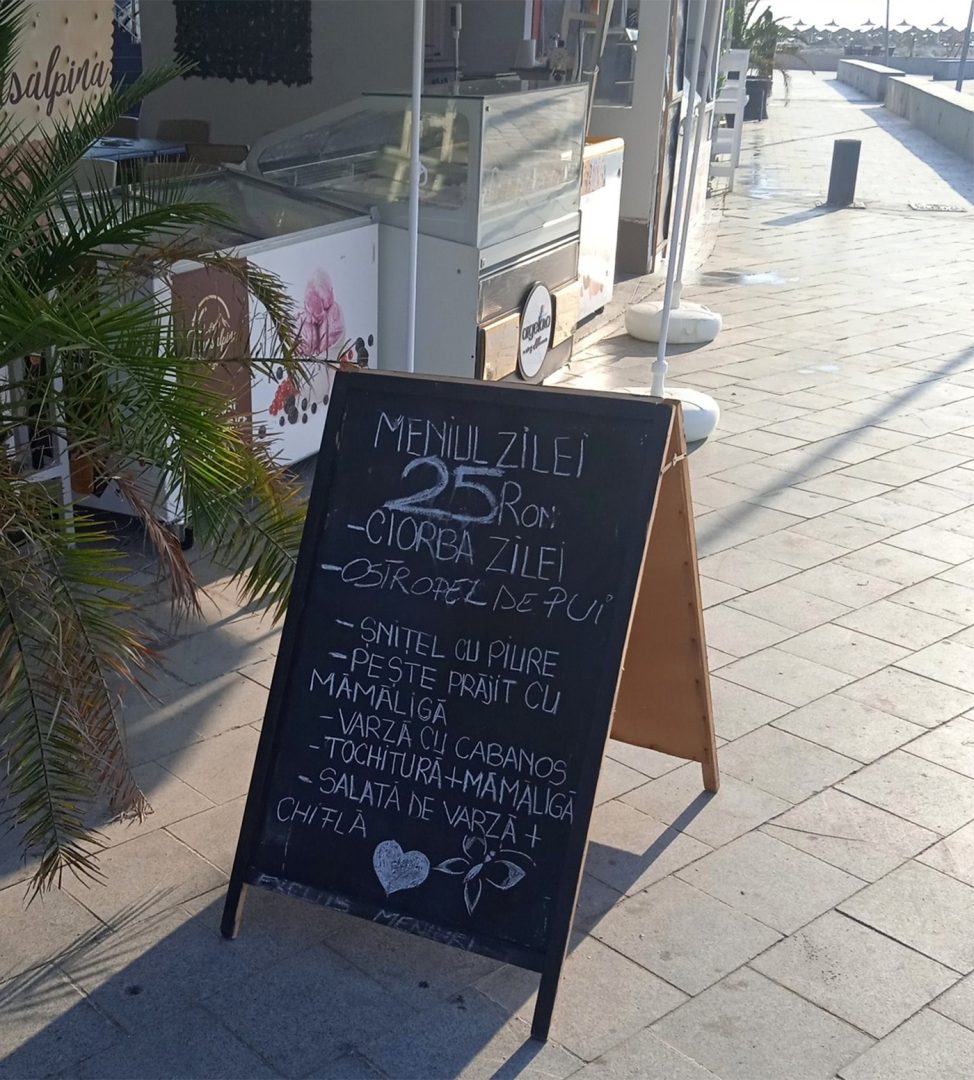 salpina
agello
MENIUL ZILEI
25 RON
-CIORBĂ ZILEI
-OSTROPEL DE PUI
-ȘNIȚEL CU PIURE
-PEȘTE PRĂJIT CU
MĂMĂLIGĂ
-VARZĂ CU CABANOS
-TOCHITURĂ+MĂMĂLIGĂ
-SALATĂ DE VARZĂ +
CHIFLĂ
15 MENIURI